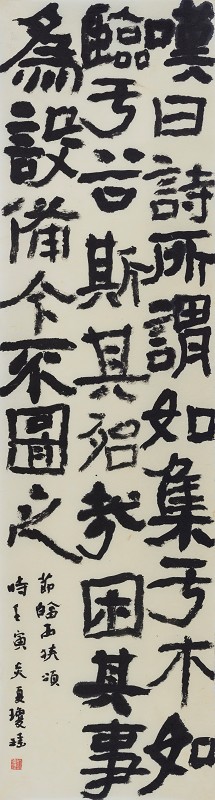 嘆曰詩所謂如集于木如
臨于谷斯其殆哉困其事
為設備今不圖之
節臨西狹頌
時壬寅炎夏瓊